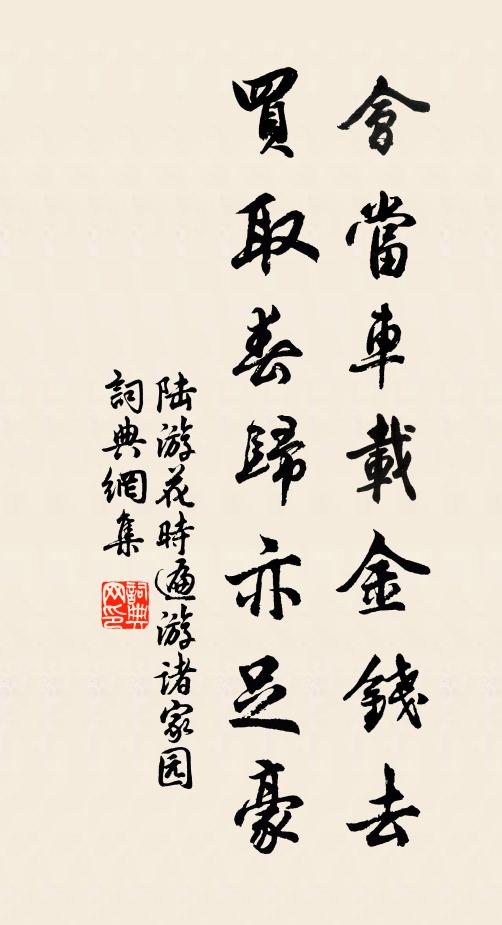 會當車載金錢去
買取春歸亦足豪
陆游花時遍游诸家园
詞典網集
詞典网印